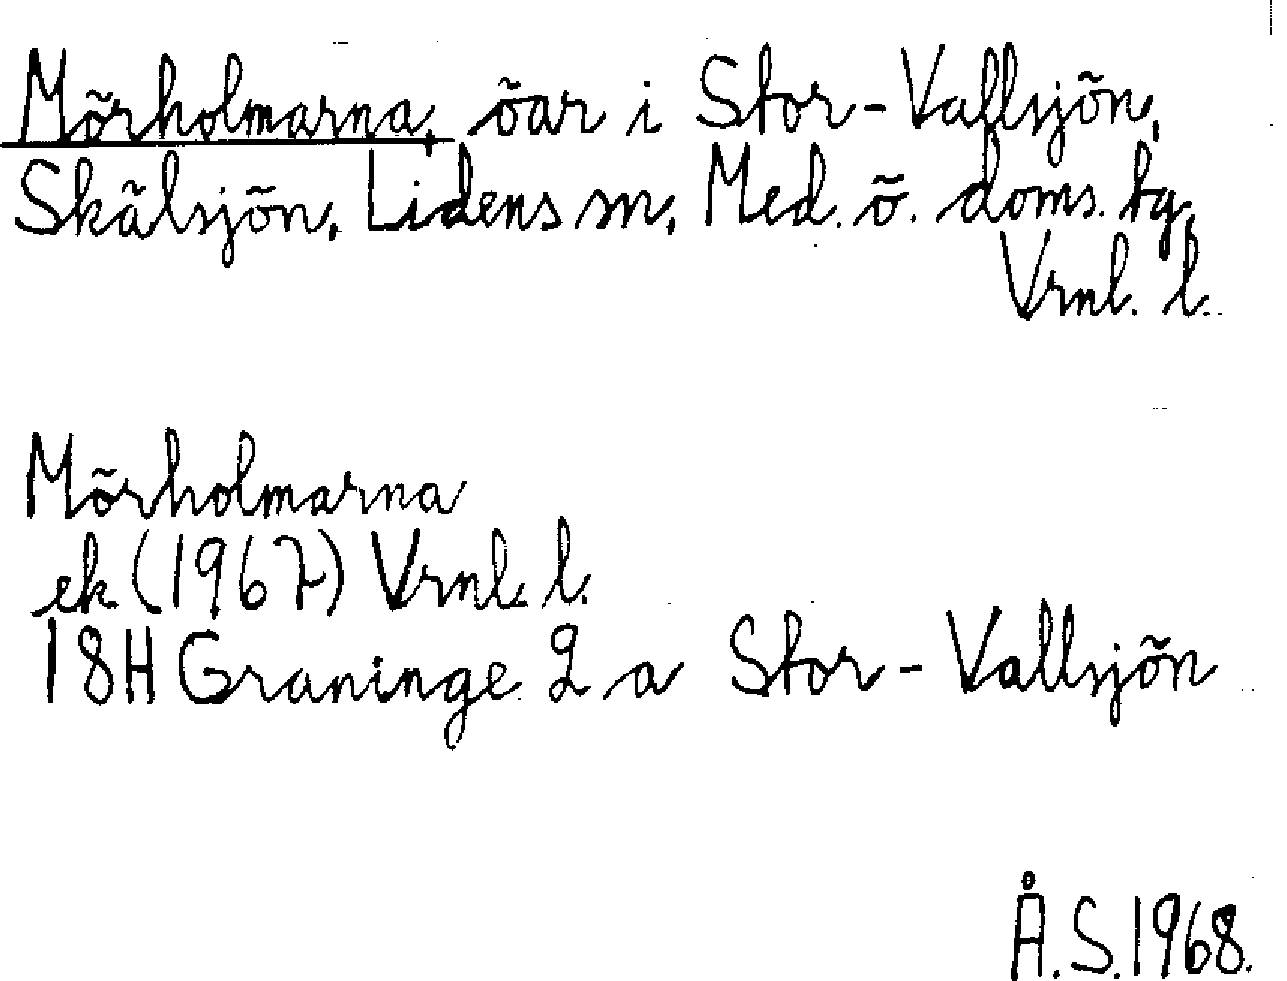 Mörholmarna, öar i Stor-Vallsjön,
Skälsjön, Lidens sn, Med. ö. doms. tg,
Vrnl. l.
Mörholmarna
ek (1967) Vrnl. l.
18H Graninge 2 a Stor-Vallsjön
Å.S. 1968.